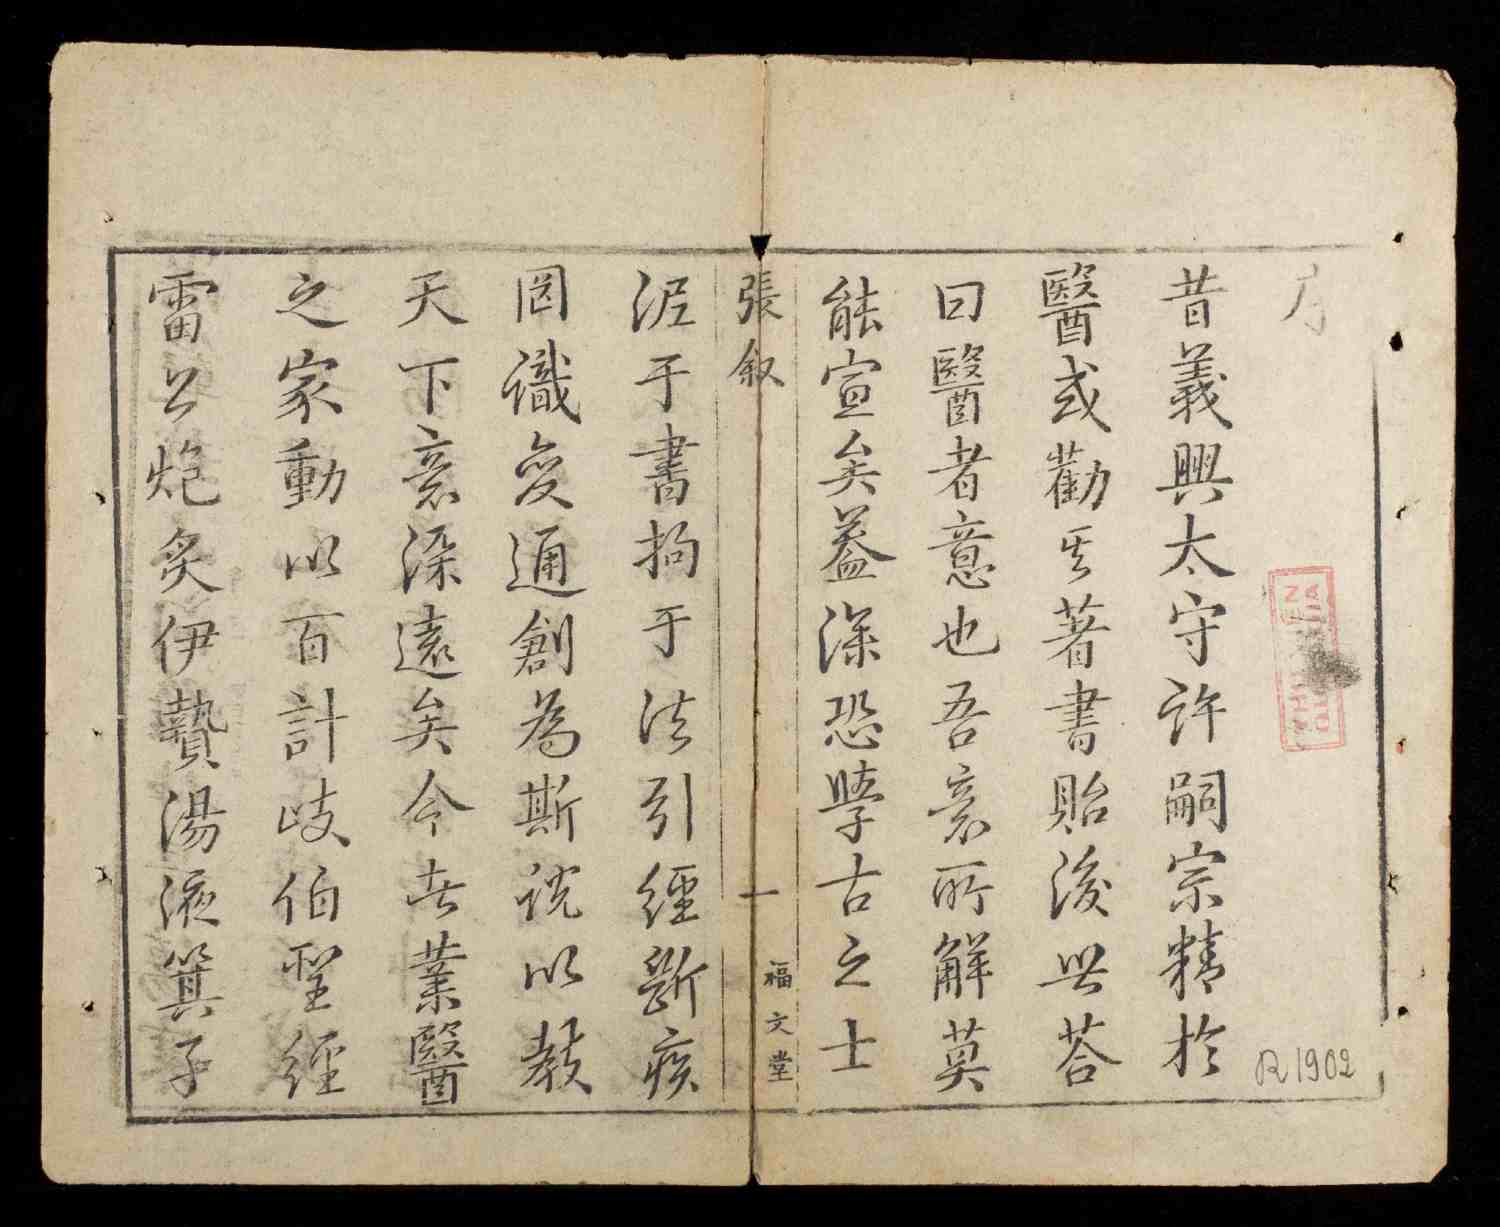 序
昔義興太守許嗣宗精於
醫或勸其著書貽後世荅
曰醫者意也吾意所解莫
能宣矣葢深恐學古之士
張叙
一
福文堂
泥于書拘于法引經斷疾
罔識變通創為斯說以教
天下意深遠矣今世業醫
之家動以百計岐伯聖經
雷公炮炙伊贄湯液箕子
THƯ VIỆN
R 1902